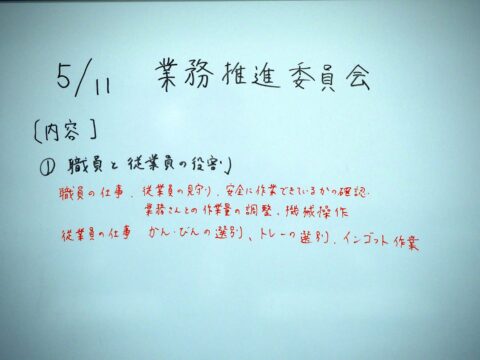 5/11 業務推進委員会
[内容]
① 職員と従業員の役割
職員の仕事、従業員の見守り、安全に作業できているかの確認。
業務さんとの作業量の調整、機械操作
従業員の仕事 かん・びんの選別、トレーの選別、インゴット作業